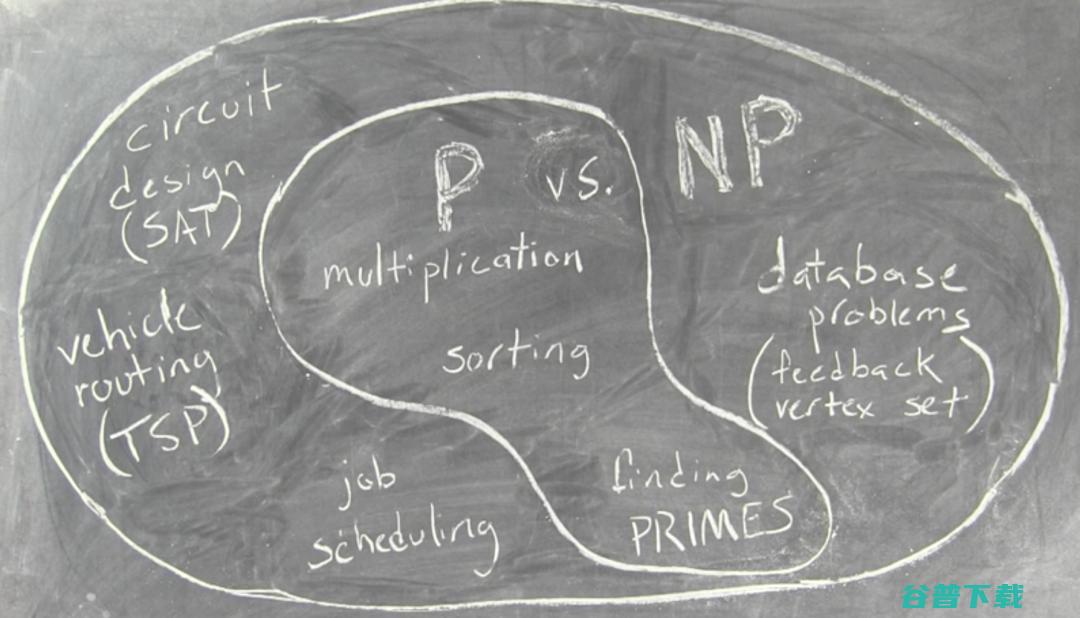 circuit
design
(SAT)
P vs. NP
multiplication
sorting
vehicle
routing
(TSP)
database
problems
(feedback
vertex set)
job
scheduling
finding
PRIMES
谷普下载